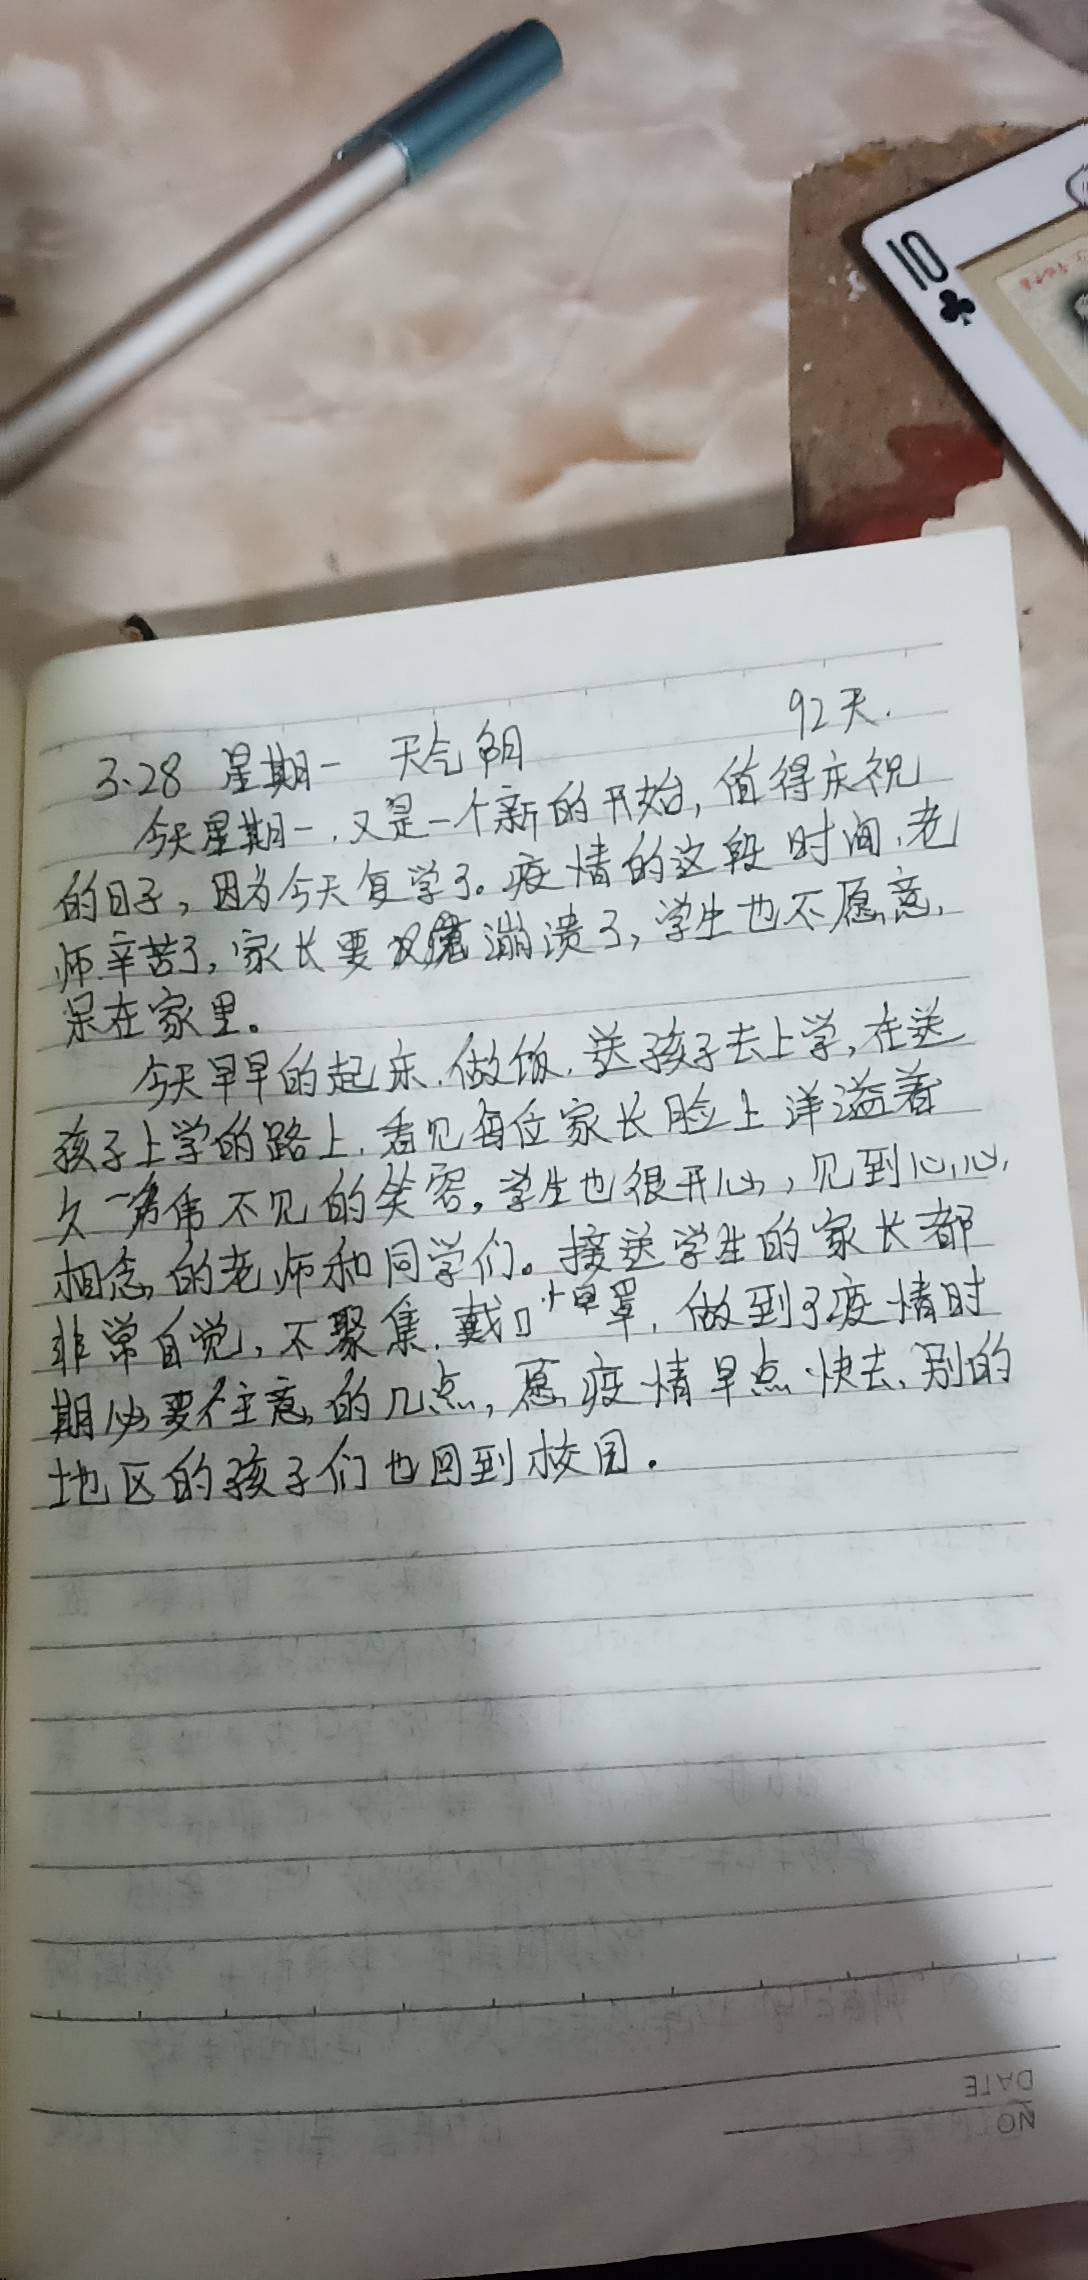 10
92天.
3.28 星期一 天气阴
今天星期一,又是一个新的开始,值得庆祝
的日子,因为今天复学了。疫情的这段时间,老
师辛苦了,家长要崩溃了,学生也不愿意,
呆在家里。
今天早早的起床.做饭.送孩子去上学,在送
孩子上学的路上,看见每位家长脸上洋溢着
久不见的笑容。学生也很开心,见到心心
相念的老师和同学们。接送学生的家长都
非常自觉,不聚集.戴口罩,做到了疫情时
期必要注意的几点,愿疫情早点快去、别的
地区的孩子们也回到校园.
DATE
NO